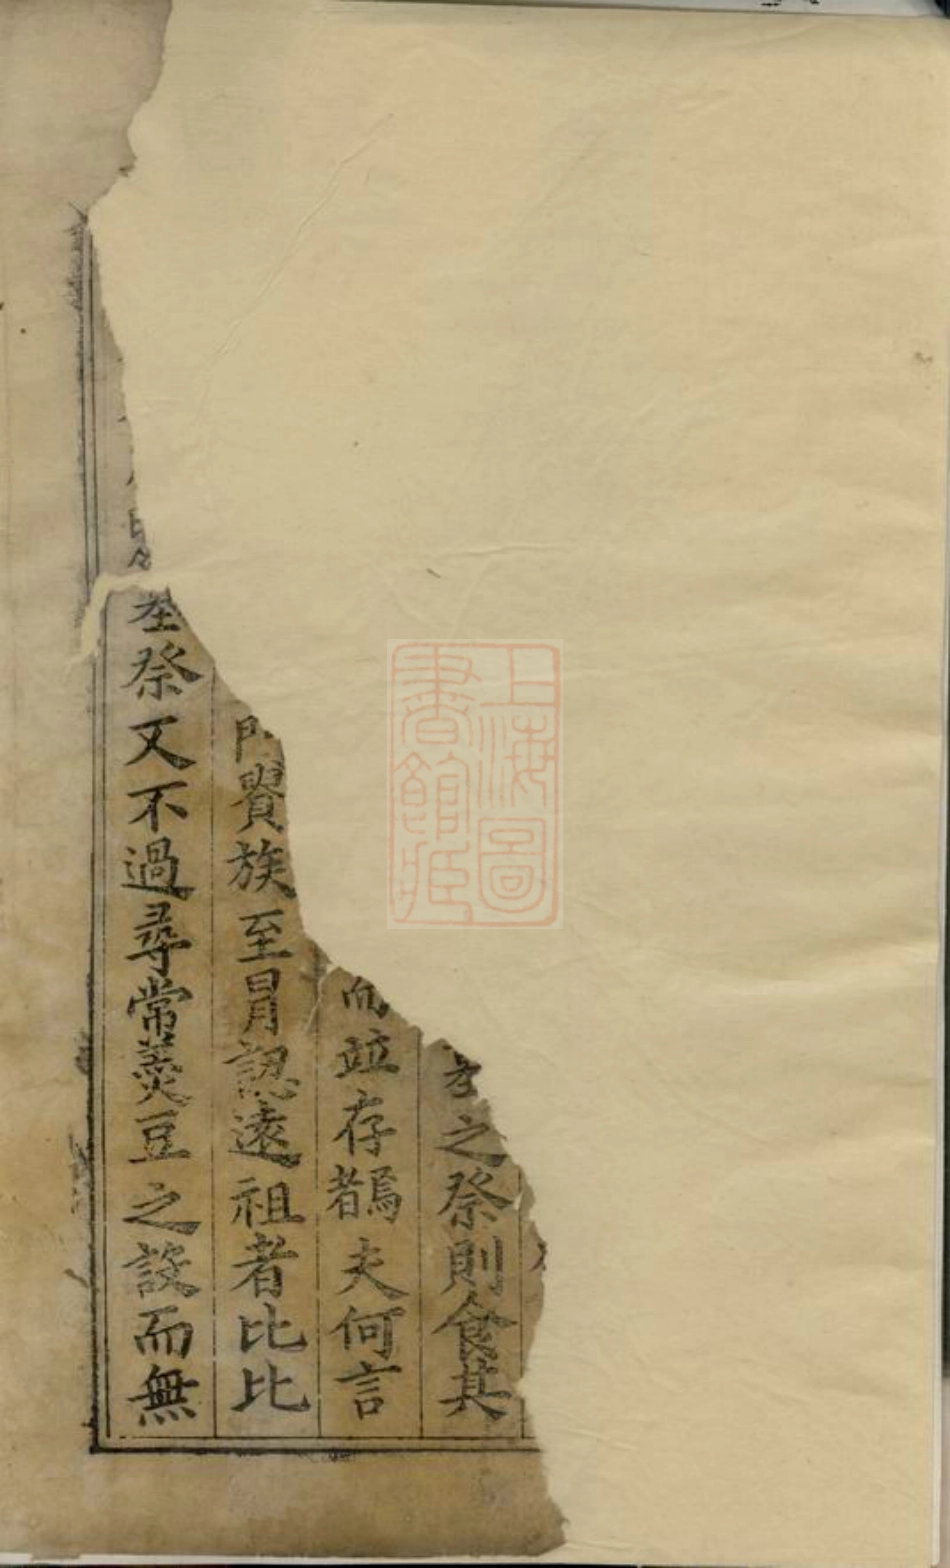 之祭則食其
而竝存者焉夫何言
族至冒認遠祖者比比
祭又不過尋常羹豆之設而無
上海圖
書館藏